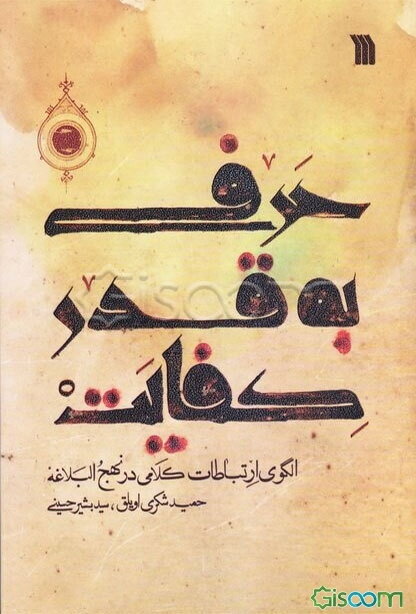 حرفی
به قدر
کفایت
الگوی ارتباطات کلامی در نهج البلاغه
حمید شکری اویلق، سید بشیر حسینی
Gisoom
Gisoom